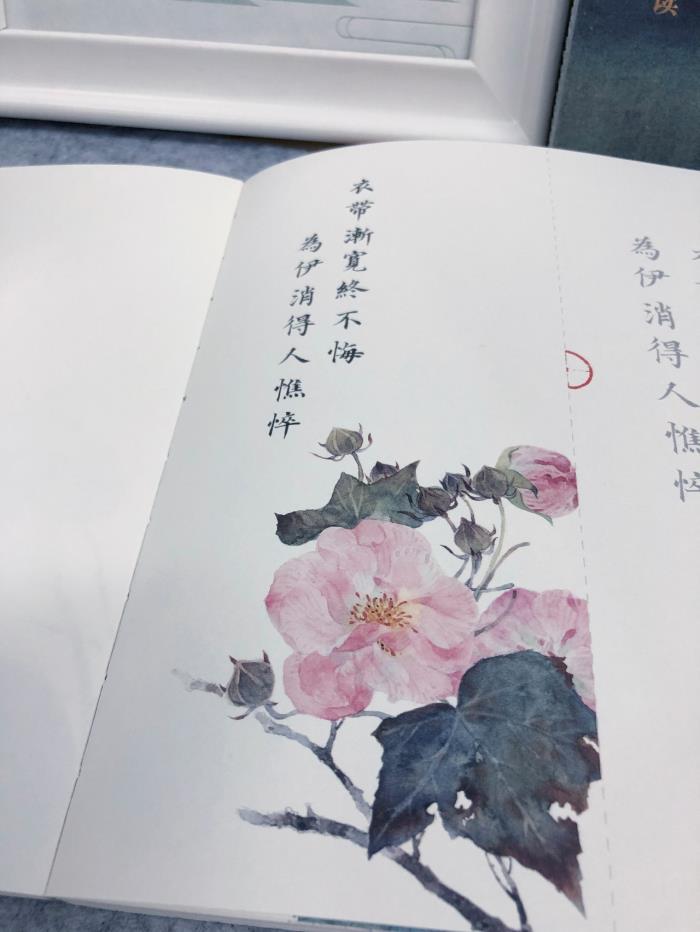 衣帶漸寬終不悔
為伊消得人憔悴
為伊消得人憔悴